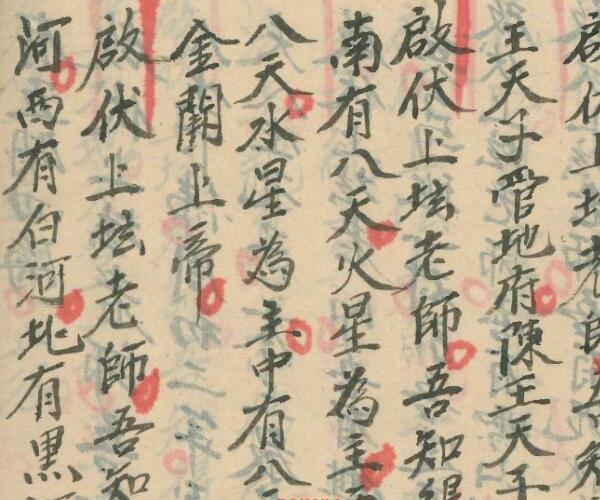 啟伏上坛老師吾知
王天子管地府陳王天子
啟伏上坛老師吾知
南有八天火星為主
八天水星為主中有八天
金闕上帝
啟伏上坛老師吾知
河西有白河北有黑河